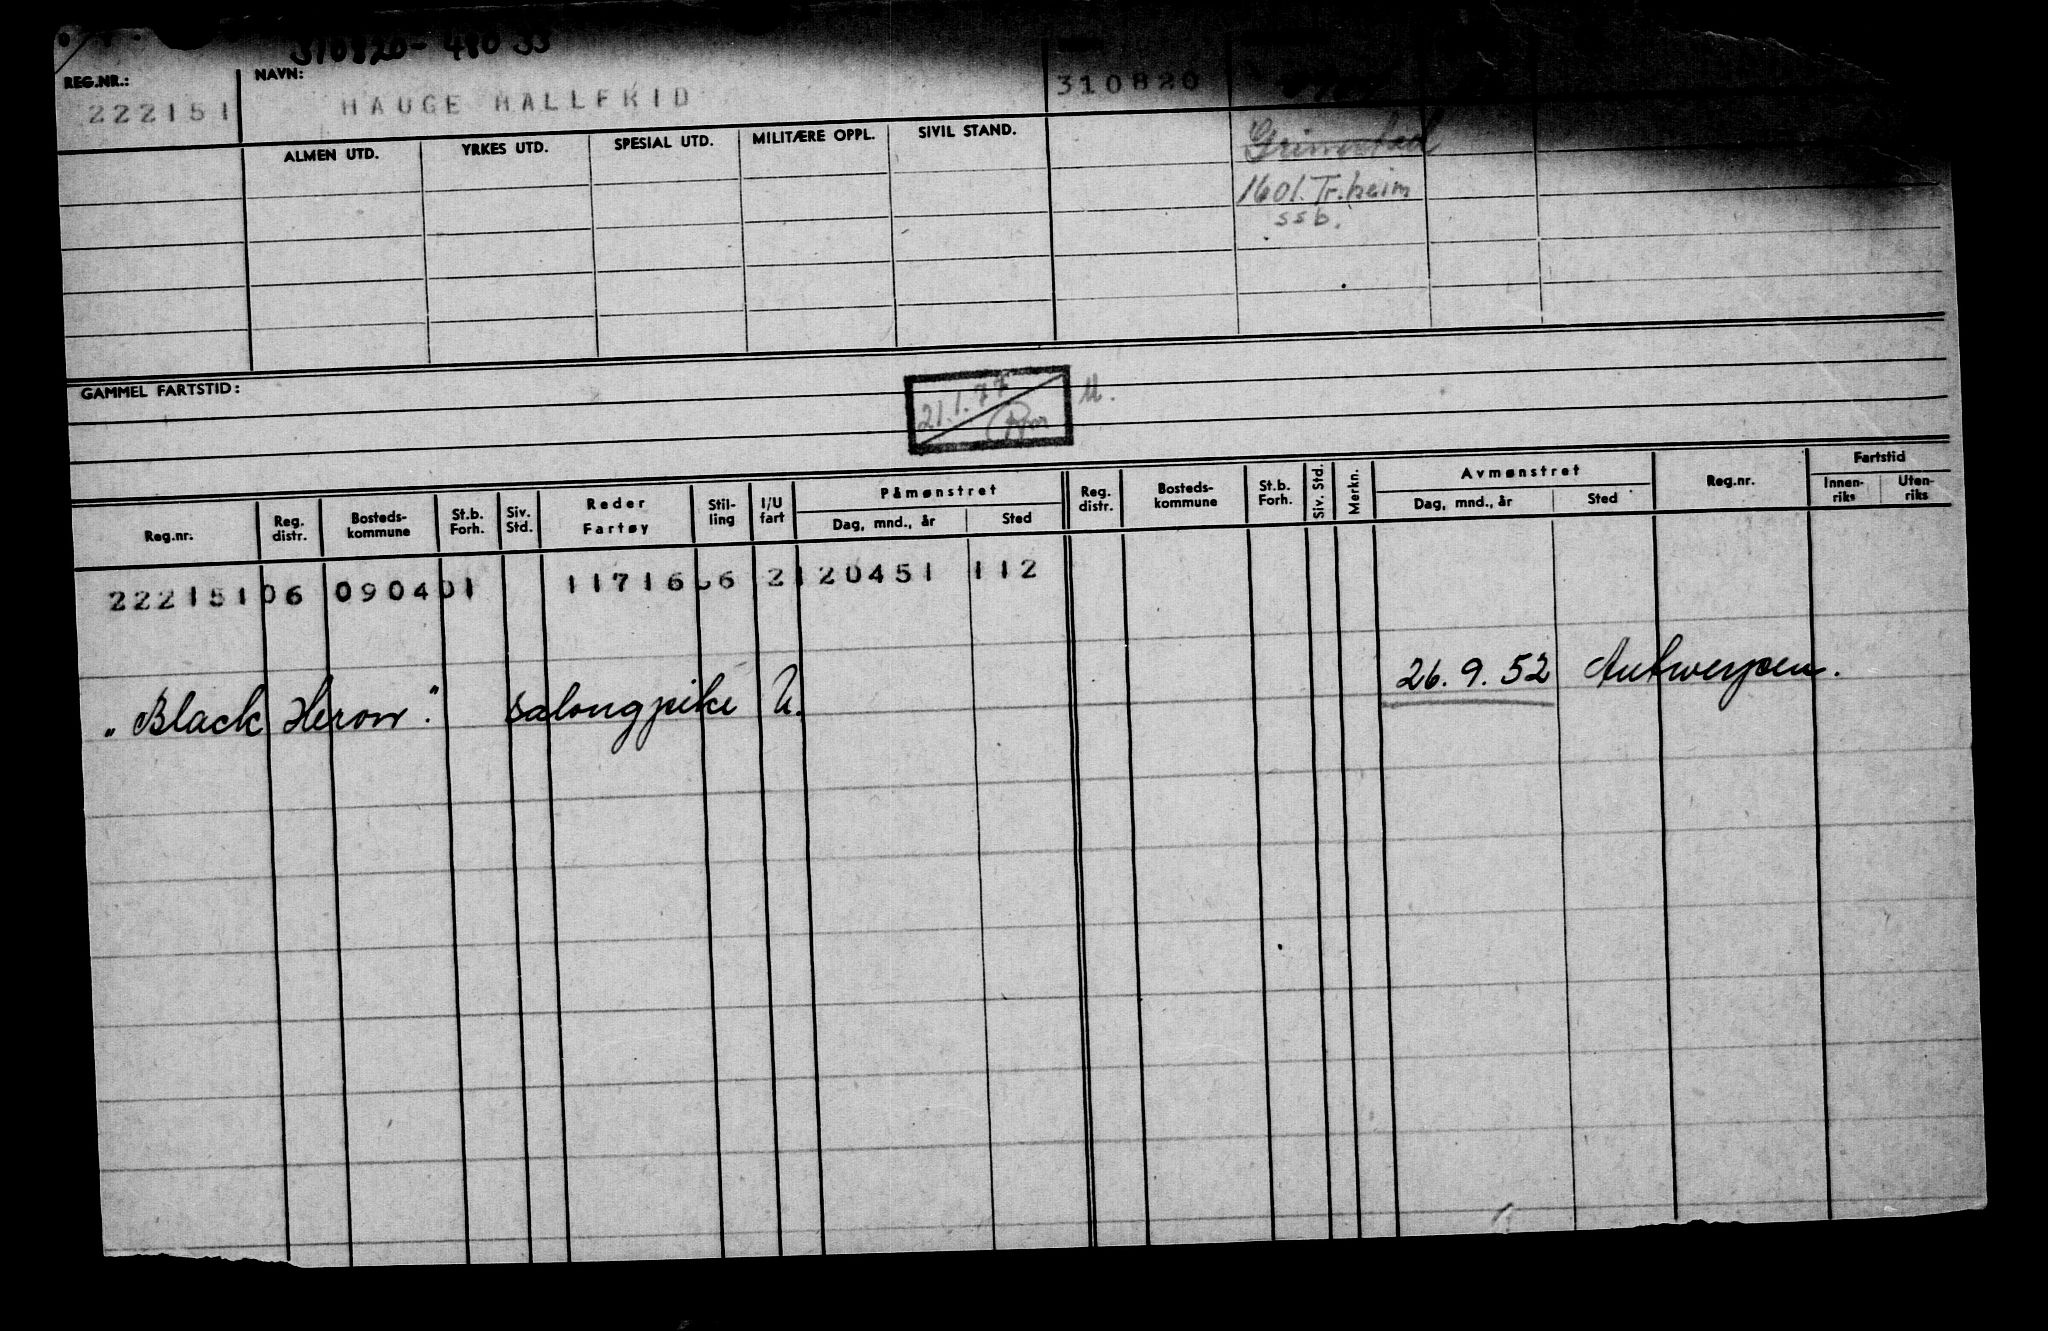 310820-48033
REG.NR.: NAVN:
222151 HAUGE HALLFRID 310820
ALMEN UTD. YRKES UTD. SPESIAL UTD. MILITÆRE OPPL. SIVIL STAND. Grimstad
1601. Tr.heim
ssb.
GAMMEL FARTSTID: 21.1.77 U.
Reg.nr. Reg. distr. Bosteds-kommune St.b. Forh. Siv. Std. Reder Fartøy Stil-ling I/U fart Påmønstret Dag, mnd., år Sted Reg. distr. Bosteds-kommune St.b. Forh. Siv. Std. Merkn. Avmønstret Dag, mnd., år Sted Reg.nr. Fartstid Innen-riks Uten-riks
222151 06 0904 01 11716 66 2 120451 112
„Black Heron." salongpike U. 26.9.52 Antwerpen.